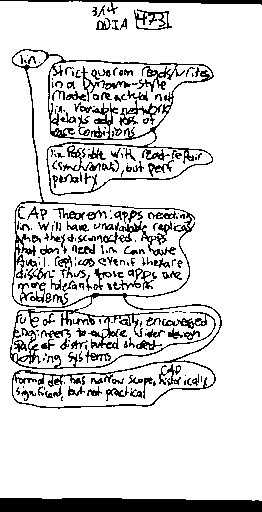 3/14
DDIA 473
lin.
Strict quorum reads/writes
in a Dynamo-style
model are actual not
lin. Variable network
delays add lots of
race conditions
lin possible with read-repair
(synchronous), but perf
penalty
CAP Theorem: apps needing
lin. will have unavailable replicas
when they disconnected. Apps
that don't need lin. can have
avail. replicas even if these are
discon. Thus, those apps are
more tolerant of network
problems
rule of thumb initially, encouraged
engineers to explore wider design
space of distributed shared
nothing systems
formal def. has narrow scope, CAP historically
significant, but not practical